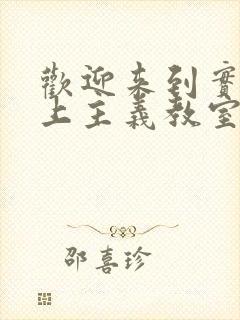 歡迎来到實
上主義教室
邵喜珍